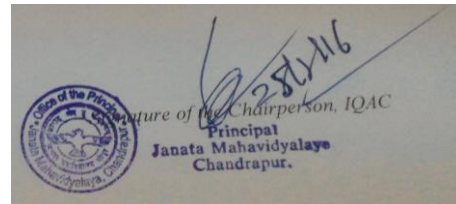 Signature of the Chairperson, IQAC
Principal
Janata Mahavidyalaya
Chandrapur.
Office of the Principal
Janata Mahavidyalaya, Chandrapur